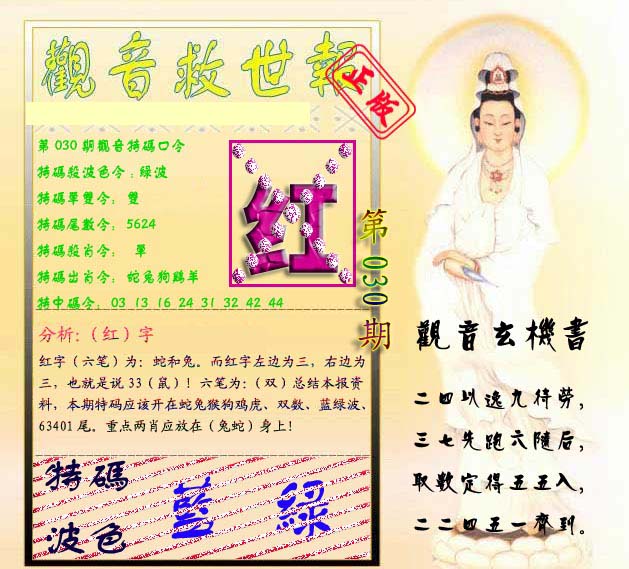 觀音救世報
正版
第 030 期觀音特碼口令
特碼殺波色令：綠波
特碼單雙令： 雙
特碼尾數令： 5624
特碼殺肖令： 單
特碼出肖令： 蛇兔狗鷄羊
特中碼令： 03 13 16 24 31 32 42 44
红
第 030 期
分析：（红）字
红字（六笔）为：蛇和兔。而红字左边为三，右边为
三，也就是说 33（鼠）！六笔为：（双）总结本报资
料，本期特码应该开在蛇兔猴狗鸡虎、双数、蓝绿波、
63401 尾。重点两肖应放在（兔蛇）身上！
特碼
波色
藍 綠
觀音玄機書
二四以逸九待勞，
三七先跑六隨后，
取数定得五五入，
二二四五一齊到。